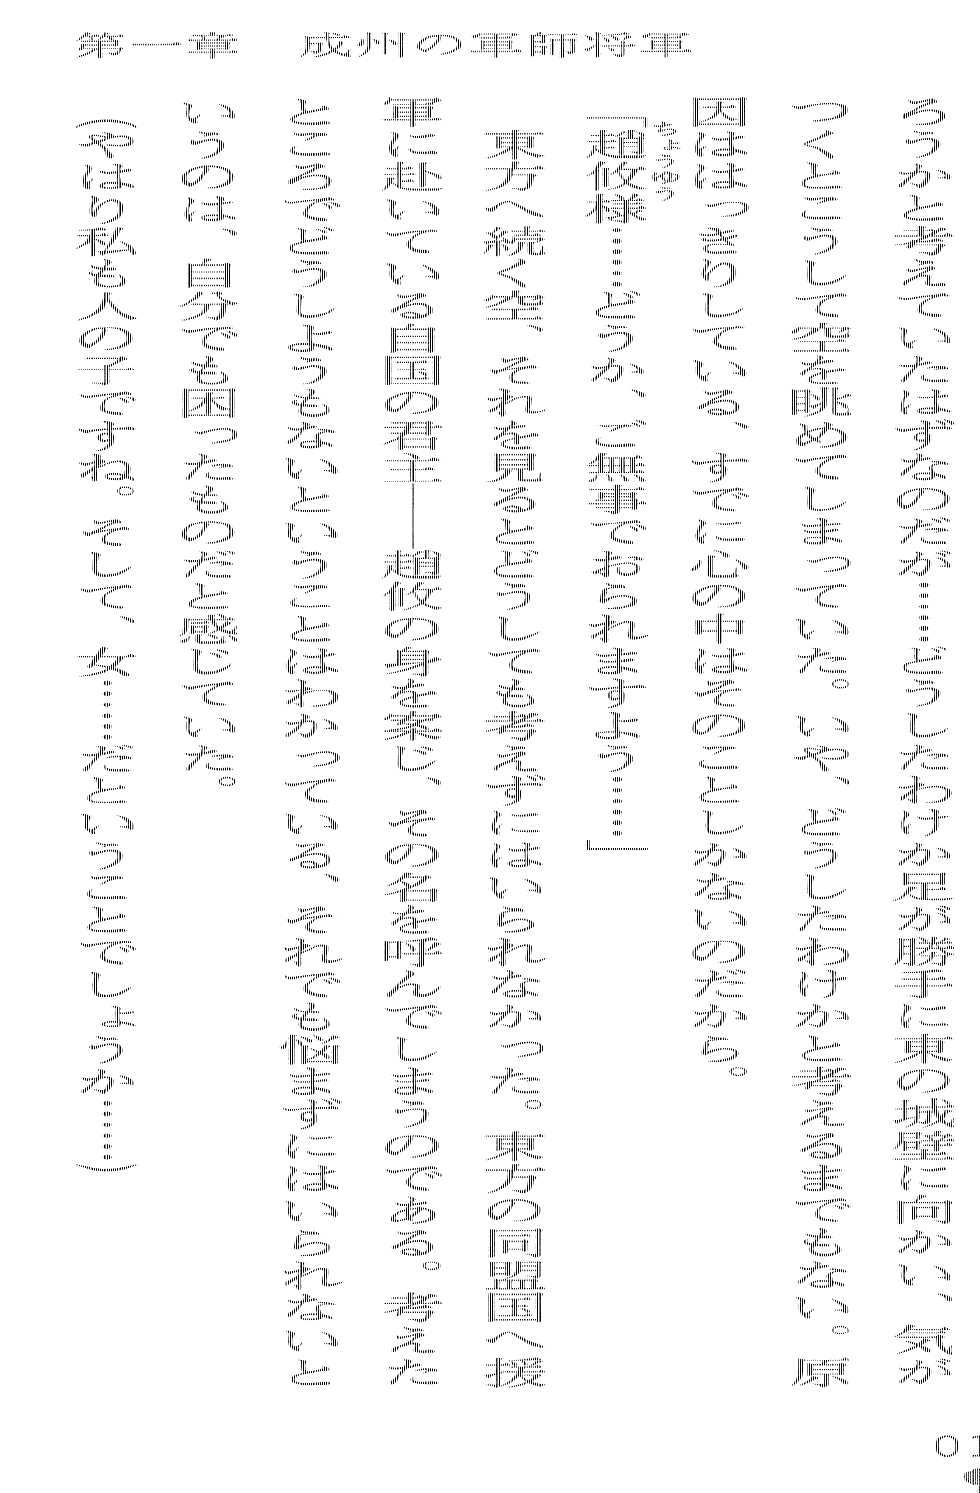 第一章　成州の軍師将軍
ろうかと考えていたはずなのだが……どうしたわけか足が勝手に東の城壁に向かい、気が
つくとこうして空を眺めてしまっていた。いや、どうしたわけかと考えるまでもない。原
因ははっきりしている、すでに心の中はそのことしかないのだから。
「趙攸様……どうか、ご無事でおられますよう……」
ちょうゆう
　東方へ続く空、それを見るとどうしても考えずにはいられなかった。東方の同盟国へ援
軍に赴いている自国の君主――趙攸の身を案じ、その名を呼んでしまうのである。考えた
ところでどうしようもないということはわかっている、それでも悩まずにはいられないと
いうのは、自分でも困ったものだと感じていた。
（やはり私も人の子ですね。そして、女……だということでしょうか……）
01